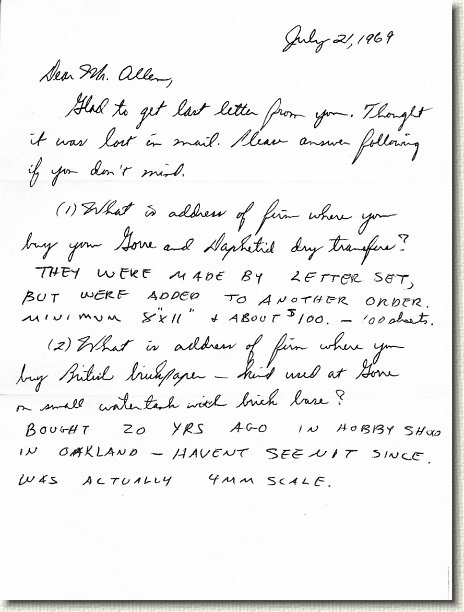 July 21, 1969
Dear Mr. Allen,
Glad to get last letter from you. Thought
it was lost in mail. Please answer following
if you don't mind.
(1) What is address of firm where you
buy your Gorre and Daphetid dry transfers?
THEY WERE MADE BY LETTER SET,
BUT WERE ADDED TO ANOTHER ORDER.
MINIMUM 8"X11" & ABOUT $100. - 100 sheets.
(2) What is address of firm where you
buy British brickpaper - kind used at Gorre
on small watertank with brick base?
BOUGHT 20 YRS AGO IN HOBBY SHOP
IN OAKLAND - HAVENT SEEN IT SINCE.
WAS ACTUALLY 4MM SCALE.